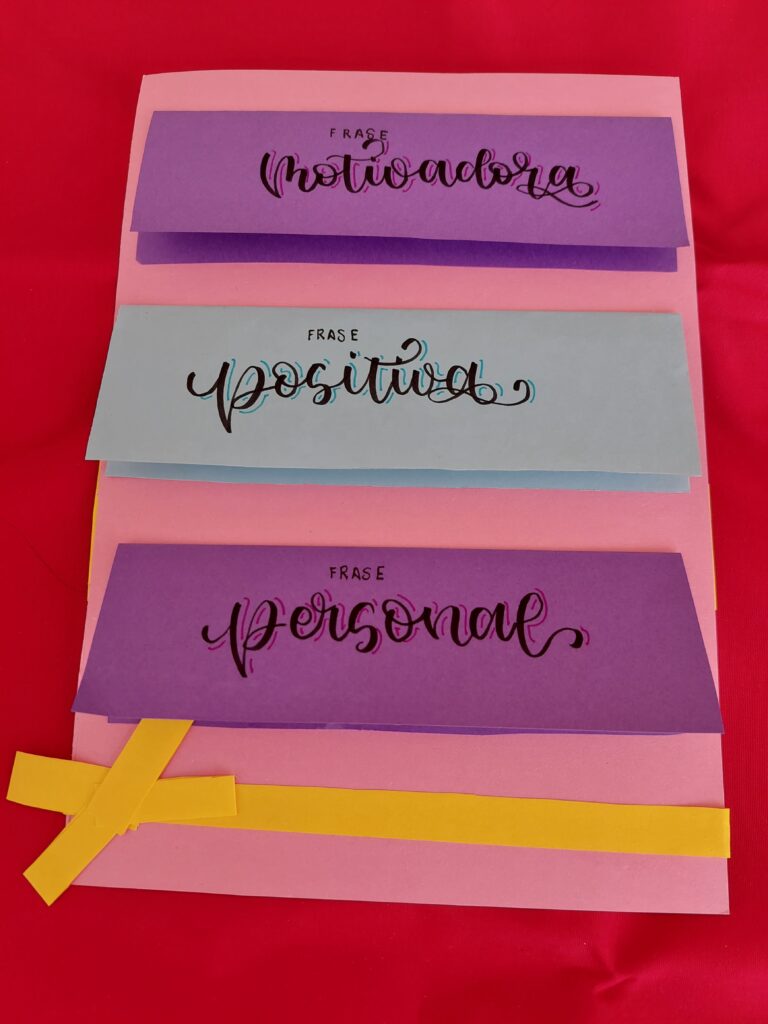 FRASE
motivadora
FRASE
positiva
FRASE
personal